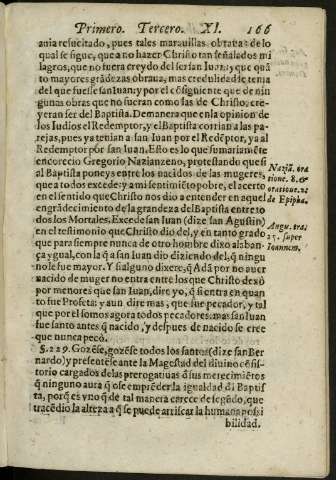 Primero. Tercero. XI. 166
auia resucitado, pues tales marauillas obraua: de lo
qual se sigue, que a no hazer Christo tan señalados mi
lagros, que no fuera creydo del ser san Iuan: y que quã
to mayores grãdezas obraua, mas credulidad se tenia
del que fuesse san Iuan: y por el cõsiguiente que de nin
gunas obras que no fueran como las de Christo, cre-
yeran ser del Baptista. De manera que en la opinion de
los Iudios el Redemptor, y el Baptista corrian a las pa-
rejas, pues ya tenian a san Iuan por el Redẽptor, ya al
Redemptor por san Iuan. Esto es lo que sumariamẽte
encorecio Gregorio Nazianzeno, protestando que si
al Baptista poneys entre los nacidos de las mugeres,
que a todos excede: y a mi sentimiẽto pobre, el acerto
en el sentido que Christo nos dio a entender en aquel
engrãdecimiento de la grandeza del Baptista entre to
dos los Mortales. Excede san Iuan (dize san Agustin)
en el testimonio que Christo dio del, y en tanto grado
que para siempre nunca de otro hombre dixo alaban-
ça ygual, con la q̃ a san Iuan dio diziendo del, q̃ ningu
no le fue mayor. Y si alguno dixere, q̃ Adã por no auer
nacido de muger no entra entre los que Christo dexò
por menores que san Iuan, dire yo, q̃ si entra en quan
to fue Profeta: y aun dire mas, que fue pecador, y tal
que por el somos agora todos pecadores, mas san Iuan
fue santo antes q̃ nacido, y despues de nacido se cree
que nunca pecò.
§. 229. Gozẽse, gozẽse todos los santos (dize san Ber
nardo) y presentẽse ante la Magestad del diuino cõsis-
torio cargados de las prerogatiuas q̃ sus merecimiẽtos
q̃ ninguno aura q̃ ose emprẽder la igualdad dl Baptis
ta, porq̃ es vno q̃ de tal manera carece de segũdo, que
tracẽdio la alteza a q̃ se puede arriscar la humana possi
bilidad.
Naziã. ora
tione. 8. &
oratione. 20
de Epipha.
Augu. tra.
27. super
Ioannem.